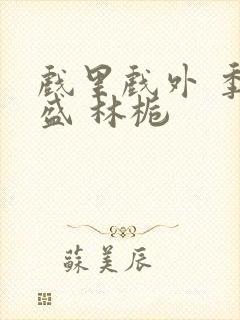 戲里戲外 季
盛 林栀
蘇美辰